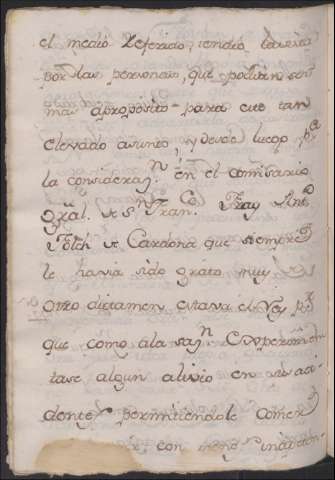 el medio referido, tendio la vista
por las personas, que podian ser
mas aproposito para este tan
elevado asunto, y desde luego p.ª
la consideraz.n en el comisario
Gräl. de S.n Fran.co Fray Ant.o
Folch de Cardona que siempre
le havia sido grato muy
otro dictamen estava el Rey p.r
que como ala saz.n Experimen
tase algun alivio en su aci
dente permitiendole comer
con menos